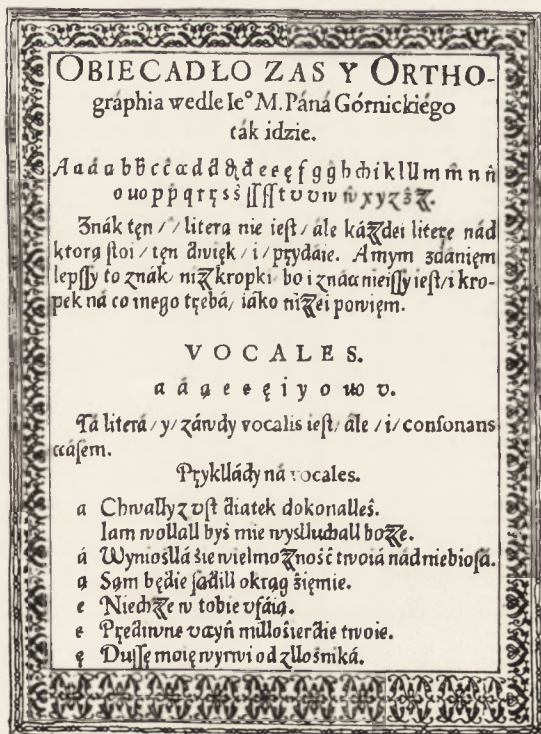 OBIECADŁO ZAS Y ORTHO-
gráphia wedle Ieº M. Páná Górnickiégo
ták idzie.
A a á ą b b̂ c ĉ œ d d̂ đ e ę f g ĝ h ch i k l ll m m̂ n n̂
o uo p p̂ q r ţ s ŝ ſſ ſt t v w ŵ x y z ẑ
Znák tęn / / literą nie ieſt / ále káżdei literę nád
ktorą ſtoi / tęn diwięk / i / prydáie. A mym zdánięm
lepſſy to znák / niż kropki bo i znácnieiſſy ieſt / i kro-
pek ná co inego trębá / iáko niżei powięm.
VOCALES.
a á ą e ę i y o uo v.
Tá literá / y / záwdy vocalis ieſt / ále / i / conſonans
ccáſem.
Prykllády ná vocales.
a Chwally z vſt diatek dokonalleŝ.
Iam wollall byŝ mie wyſlluchall boże.
á Wynioſllá ŝie wielmożnoŝĉ twoiá nád niebioſá.
ą Sąm będie ſądill okrąg ẑięmie.
e Niech że w tobie vfáią.
e Prędiwne vcyń milloŝierdie twoie.
ę Duſſę moię wyrwi od zlloŝniká.